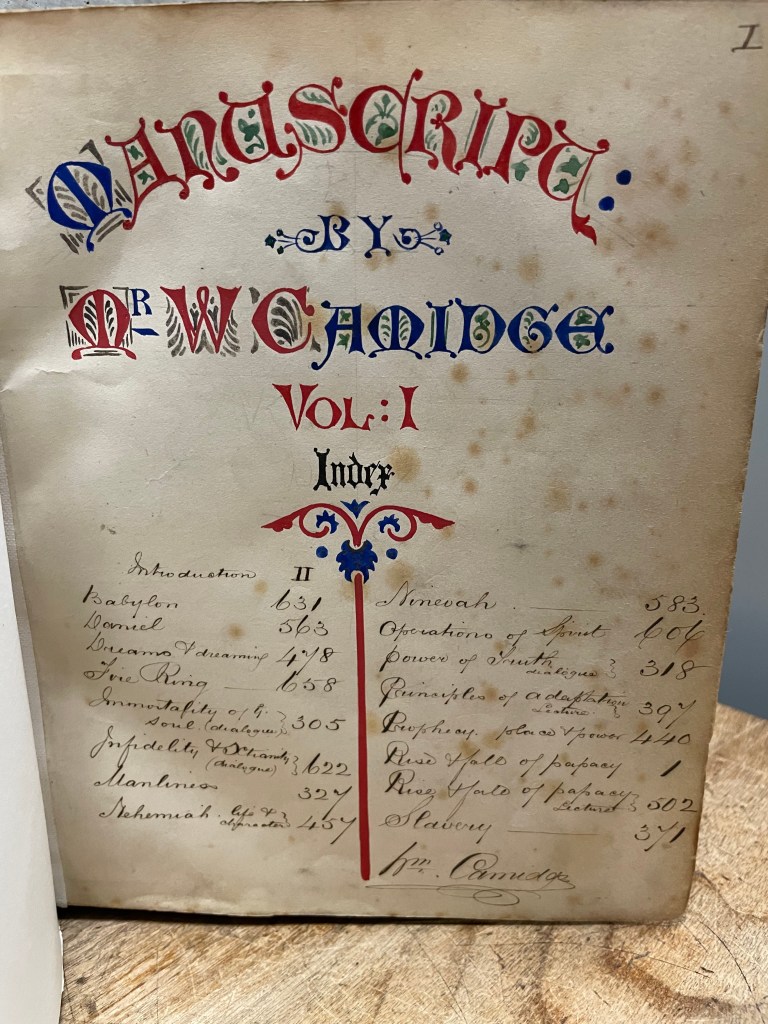 I
Manuscript:
BY
Mr W Camidge
Vol: I
Index
Introduction II
Babylon 631
Daniel 563
Dreams & dreaming 478
Fire Ring 658
Immortality of
soul (dialogue) 305
Infidelity & Xtianity
(dialogue) 622
Manliness 327
Nehemiah. life &
character 457
Ninevah. 583.
Operations of Spirit 606
Power of Truth
dialogue 318
Principles of adaptation
Lecture 397
Prophecy. place & power 440
Rise & fall of papacy 1
Rise & fall of papacy
Lecture 502
Slavery 371
Wm. Camidge